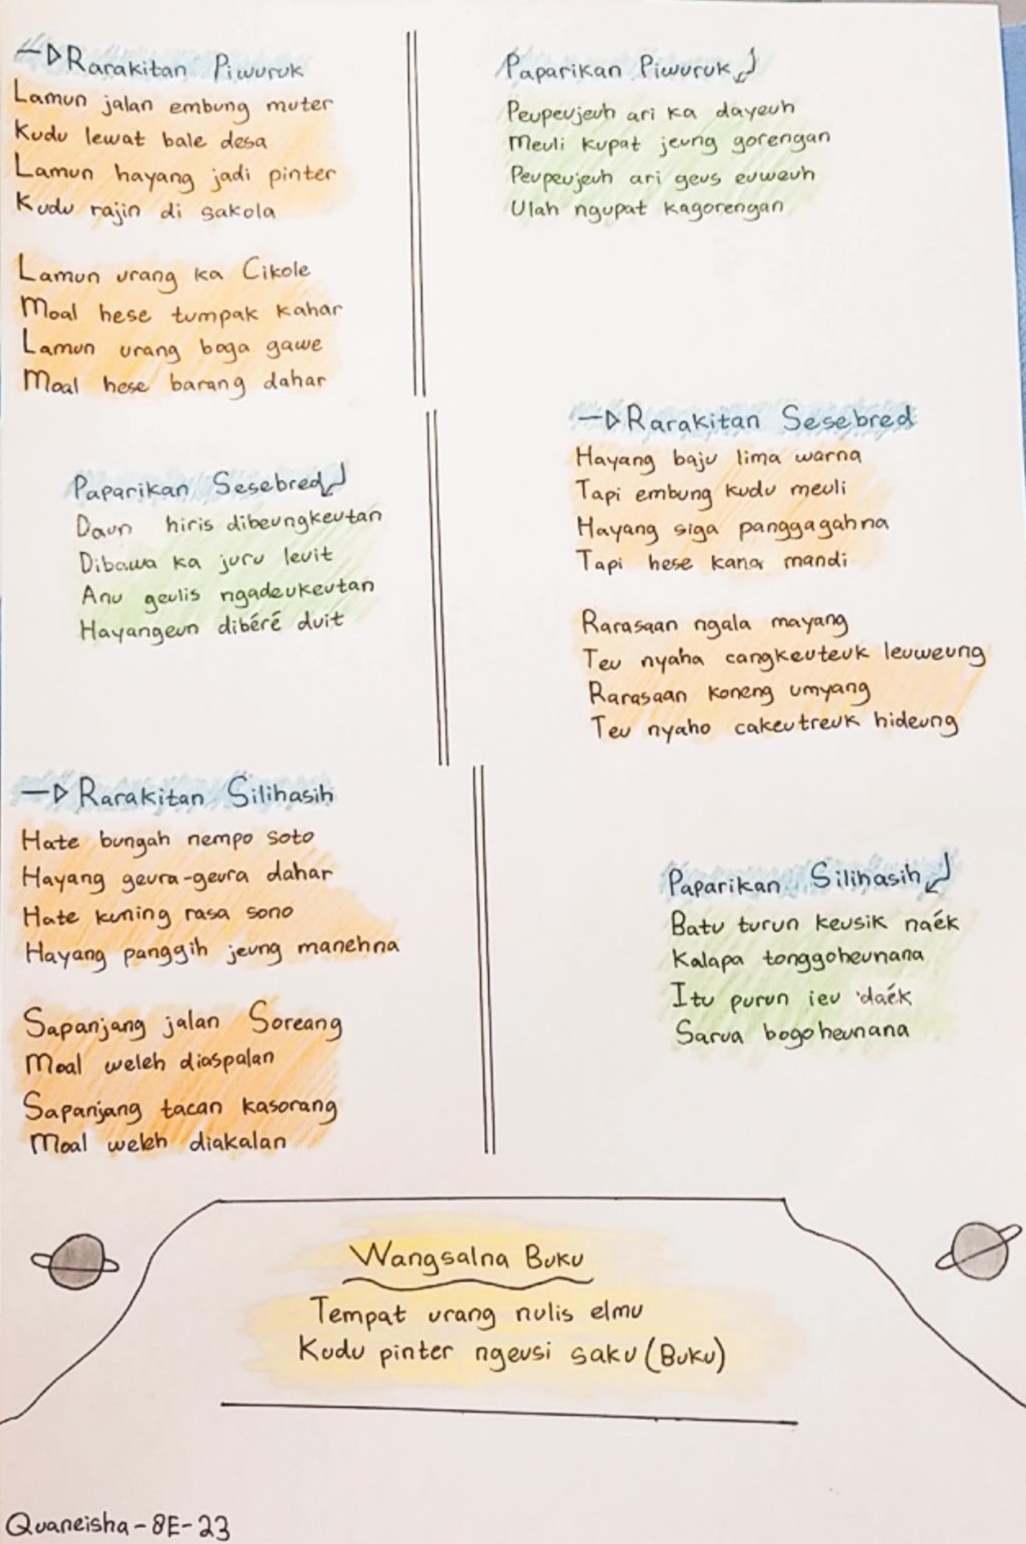 Rarakitan Piwuruk
Lamun jalan embung muter
Kudu lewat bale desa
Lamun hayang jadi pinter
Kudu rajin di sakola
Lamun urang ka Cikole
Moal hese tumpak kahar
Lamun urang boga gawe
Moal hese barang dahar
Paparikan Piwuruk
Peupeujeuh ari ka dayeuh
Meuli kupat jeung gorengan
Peupeujeuh ari geus euweuh
Ulah ngupat kagorengan
Paparikan Sesebred
Daun hiris dibeungkeutan
Dibawa ka juru leuit
Anu geulis ngadeukeutan
Hayangeun dibéré duit
Rarakitan Sesebred
Hayang baju lima warna
Tapi embung kudu meuli
Hayang siga panggagahna
Tapi hese kana mandi
Rarasaan ngala mayang
Teu nyaha cangkeuteuk leuweung
Rarasaan koneng umyang
Teu nyaho cakeutreuk hideung
Rarakitan Silihasih
Hate bungah nempo soto
Hayang geura-geura dahar
Hate kuning rasa sono
Hayang panggih jeung manehna
Sapanjang jalan Soreang
Moal weleh diaspalan
Sapanjang tacan kasorang
Moal weleh diakalan
Paparikan Silihasih
Batu turun keusik naék
Kalapa tonggoheunana
Itu purun ieu daék
Sarua bogoheunana
Wangsalna Buku
Tempat urang nulis elmu
Kudu pinter ngeusi saku (Buku)
Quaneisha-8E-23